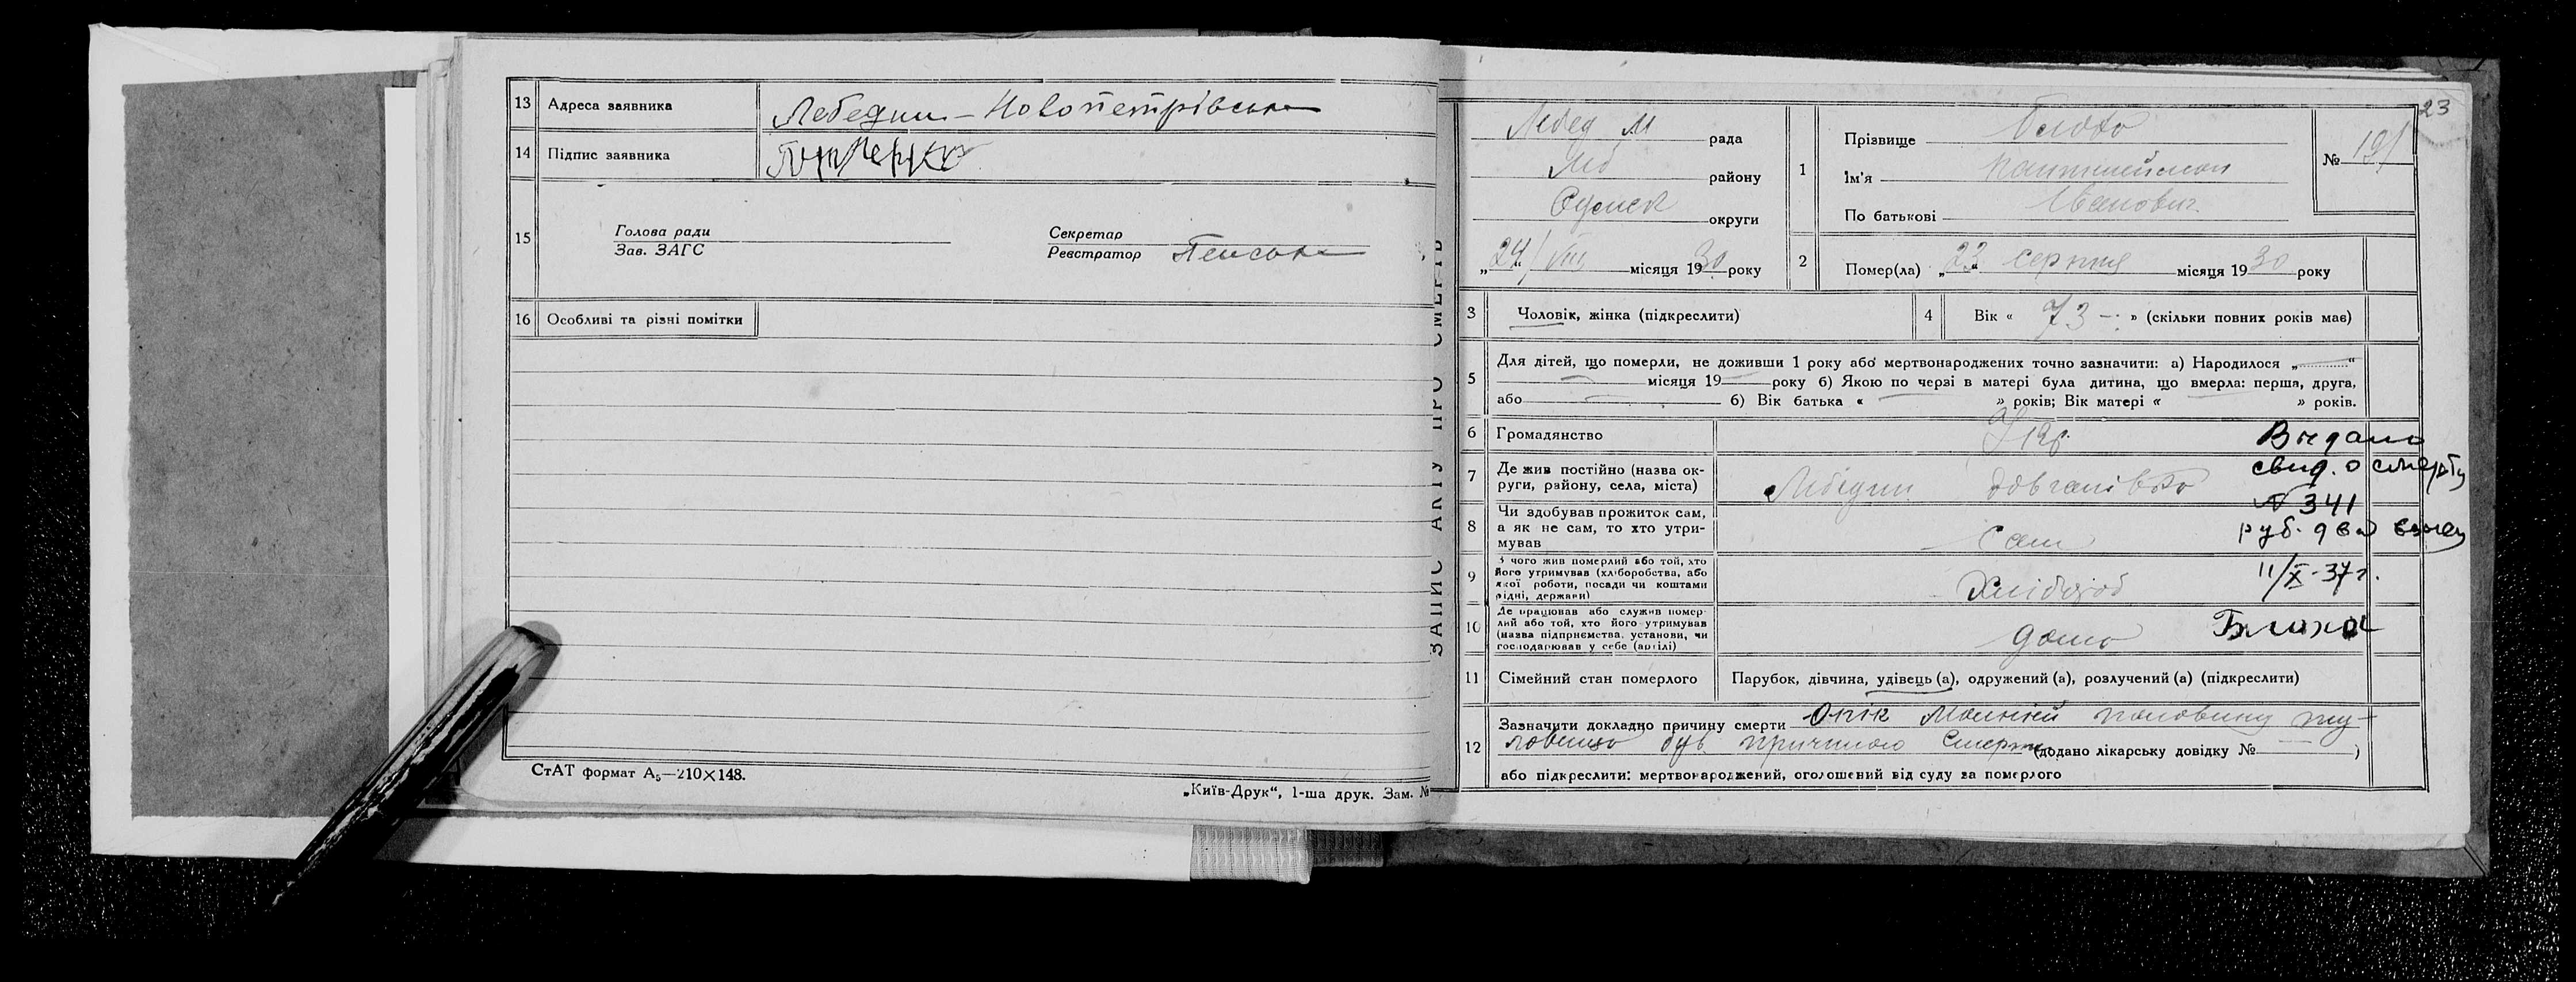 13 Адреса заявника Лебедин – Новопетрівська
14 Підпис заявника
15 Голова ради
Зав. ЗАГС
Секретар
Реєстратор
16 Особливі та різні помітки
СтАТ формат А₅—210×148.
„Київ-Друк“, 1-ша друк. Зам. №
ЗАПИС АКТУ ПРО СМЕРТЬ
23
Лебед М рада
Леб район​у
Сумск округи
„24/VIII місяця 1930 року
1 Прізвище
Ім'я Пантилеймон
По батькові Іванович
№ 191
2 Помер(ла) „23“ серпня місяця 1930 року
3 Чоловік, жінка (підкреслити)
4 Вік « 73 – » (скільки повних років має)
5 Для дітей, що померли, не доживши 1 року або мертвонароджених точно зазначити: а) Народилося „ “
місяця 19 року б) Якою по черзі в матері була дитина, що вмерла: перша, друга,
або б) Вік батька « » років; Вік матері « » років.
6 Громадянство Укр.
7 Де жив постійно (назва ок-
руги, району, села, міста) Лебедин Довганівка
8 Чи здобував прожиток сам,
а як не сам, то хто утри-
мував Сам
9 З чого жив померлий або той, хто
його утримував (хліборобства, або
якої роботи, посади чи коштами
рідні, держави) Хлібороб
10 Де працював або служив помер-
лий або той, хто його утримував
(назва підприємства, установи, чи
господарював у себе (артілі) дома
Видано
свид. о смерти
№ 341
руб. два взнеч
11/X-37 г.
11 Сімейний стан померлого Парубок, дівчина, удівець (а), одружений (а), розлучений (а) (підкреслити)
12 Зазначити докладно причину смерти Опік половину ту-
ловища був причиною Смерти (додано лікарську довідку № )
або підкреслити: мертвонароджений, оголошений від суду за померлого